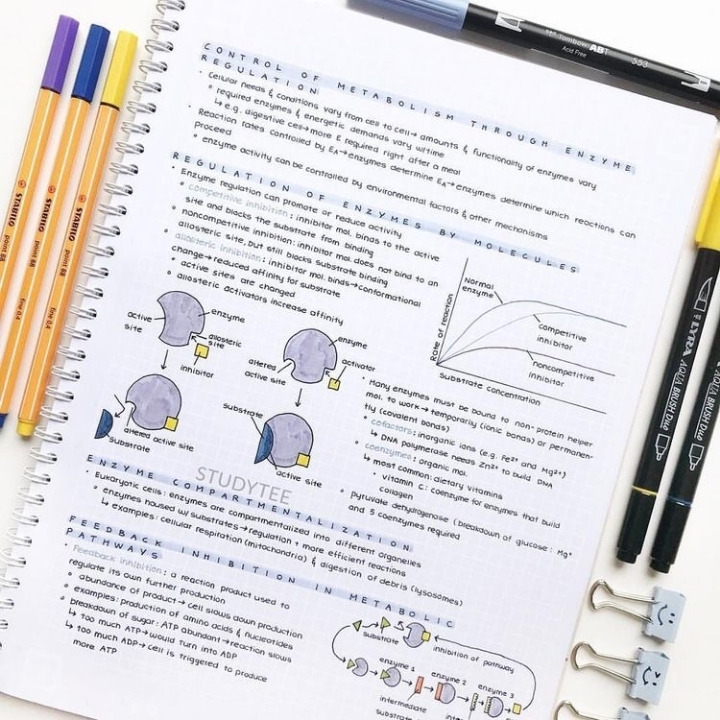 CONTROL OF METABOLISM THROUGH ENZYME
REGULATION
• Cellular needs & conditions vary from cell to cell → amounts & functionality of enzymes vary
• required enzymes & energetic demands vary w/time
↳ e.g. digestive cell → more E required right after a meal
• Reaction rates controlled by EA → enzymes determine EA → enzymes determine which reactions can
proceed
• enzyme activity can be controlled by environmental factors & other mechanisms
REGULATION OF ENZYMES BY MOLECULES
• Enzyme regulation can promote or reduce activity
• competitive inhibition: inhibitor mol. binds to the active
site and blocks the substrate from binding
• noncompetitive inhibition: inhibitor mol. does not bind to an
allosteric site, but still blocks substrate binding
• allosteric inhibition: inhibitor mol. binds → conformational
change → reduced affinity for substrate
• active sites are changed
• allosteric activators increase affinity
Rate of reaction
Normal
enzyme
competitive
inhibitor
noncompetitive
inhibitor
Substrate concentration
active
site
enzyme
allosteric
site
inhibitor
altered active site
Substrate
enzyme
activator
altered
active site
Substrate
active site
• Many enzymes must be bound to non-protein helper
mol. to work → temporarily (ionic bonds) or permanen-
tly (covalent bonds)
• cofactors: inorganic ions (e.g. Fe²⁺ and Mg²⁺)
↳ DNA polymerase needs Zn²⁺ to build DNA
• coenzymes: organic mol.
↳ most common: dietary vitamins
• vitamin C: coenzyme for enzymes that build
collagen
• pyruvate dehydrogenase (breakdown of glucose: Mg⁺
and 5 coenzymes required
STUDYTEE
ENZYME COMPARTMENTALIZATION
• Eukaryotic cells: enzymes are compartmentalized into different organelles
• enzymes housed w/ substrates → regulation + more efficient reactions
↳ examples: cellular respiration (mitochondria) & digestion of debris (lysosomes)
FEEDBACK INHIBITION IN METABOLIC
PATHWAYS
• Feedback inhibition: a reaction product used to
regulate its own further production
• abundance of product → cell slows down production
• examples: production of amino acids & nucleotides
• breakdown of sugar: ATP abundant → reaction slows
↳ too much ATP → would turn into ADP
↳ too much ADP → cell is triggered to produce
more ATP
Substrate
inhibition of pathway
enzyme 1
enzyme 2
enzyme 3
intermediate
STABILO
point 88
fine 0.4
STABILO
point 88
fine 0.4
STABILO
point 88
Tombow ABT
Acid Free
553
LYRA AQUA BRUSH DUO
LYRA AQUA BRUSH DUO